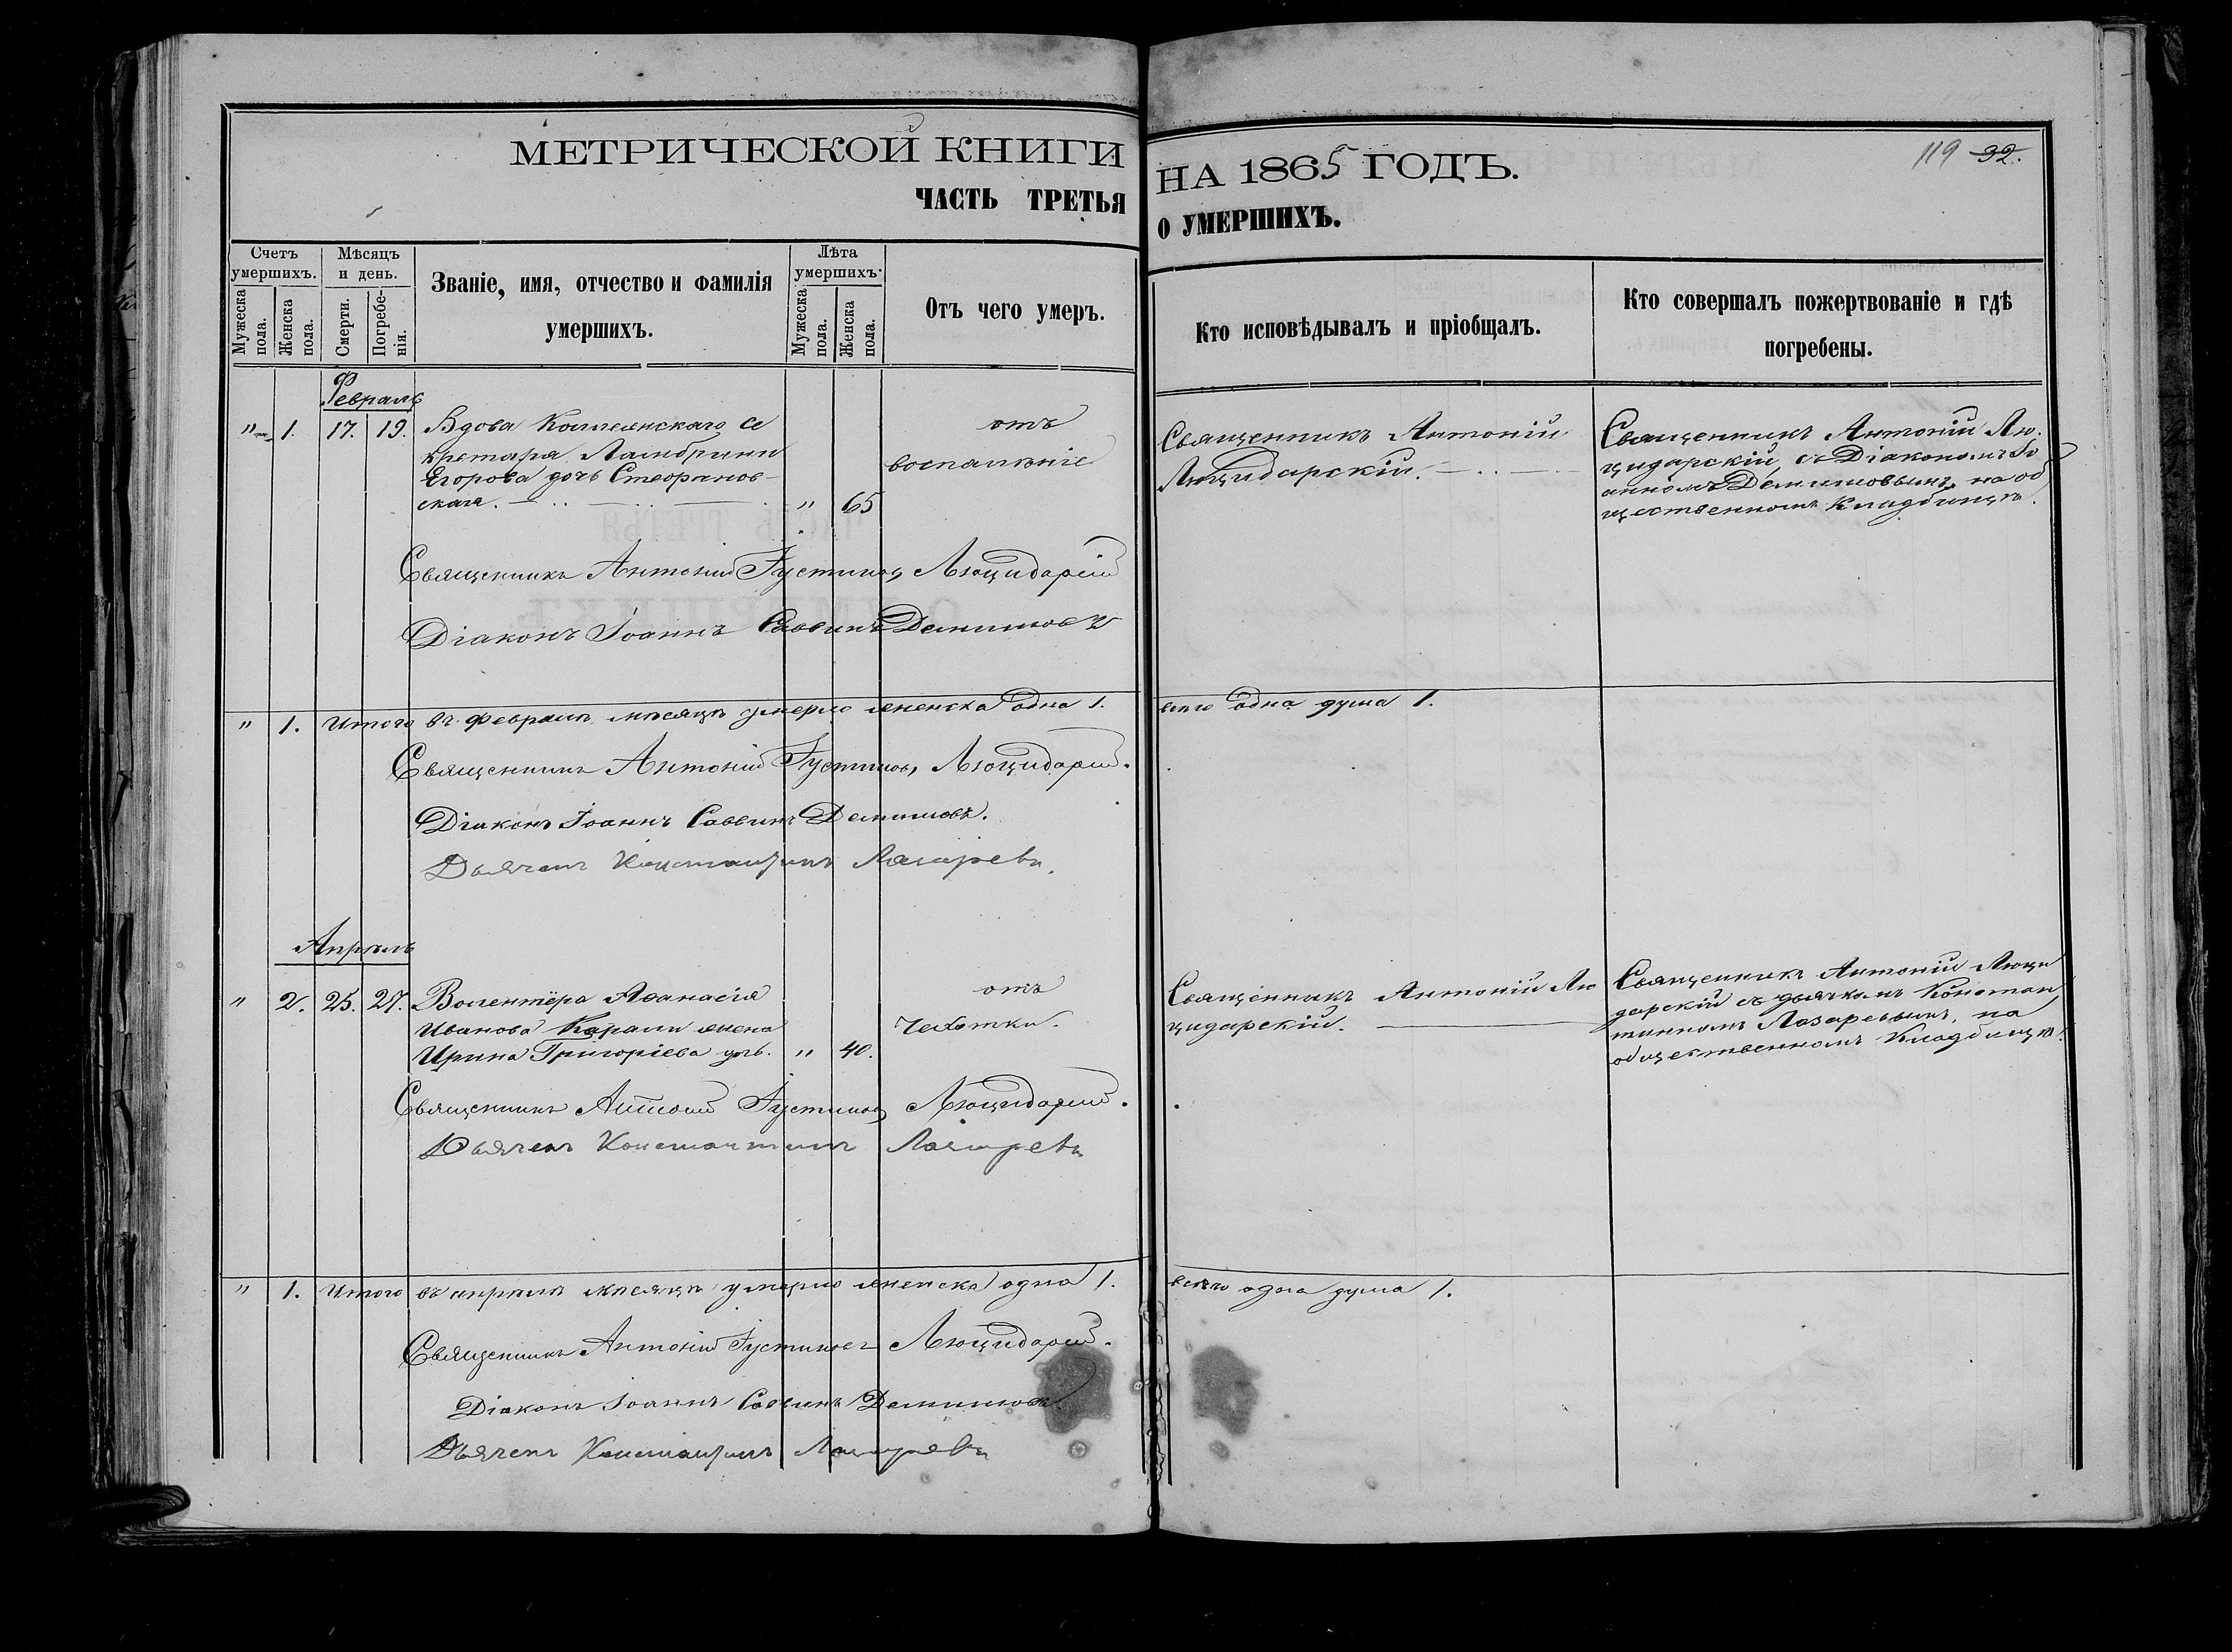 МЕТРИЧЕСКОЙ КНИГИ
ЧАСТЬ ТРЕТЬЯ
НА 1865 ГОДЪ.
О УМЕРШИХЪ.
119 32.
Счетъ умершихъ.
Мужеска пола.
Женска пола.
Мѣсяцъ и день.
Смерти.
Погребенія.
Званіе, имя, отчество и фамилія
умершихъ.
Лѣта умершихъ.
Мужеска пола.
Женска пола.
Отъ чего умеръ.
Кто исповѣдывалъ и пріобщалъ.
Кто совершалъ пожертвованіе и гдѣ
погребены.
Февраль
" 1. 17. 19. Вдова Коллежскаго Се
кретаря Ламбрини
Егорова дочь Стефанов-
ская. " 65
отъ
воспаленіе
Священникъ Антоній
Люцидарскій.
Священникъ Антоній Лю-
цидарскій, съ Діакономъ Іо
анномъ Демишовымъ, на об
щественномъ Кладбищѣ.
Священникъ Антоній Іустиновъ Люцидарскій
Діаконъ Іоаннъ Саввинъ Демишовъ
" 1. Итого въ Февралѣ мѣсяцѣ умерло женска одна 1. всего одна душа 1.
Священникъ Антоній Іустиновъ Люцидарскій.
Діаконъ Іоаннъ Саввинъ Демишовъ.
Дьячекъ Константинъ Лазаревъ.
Апрѣль
" 2. 25. 27. Волентёра Аѳанасія
Иванова Карали жена
Ирина Григоріева дочь. " 40.
отъ
Чехотки.
Священникъ Антоній Лю
цидарскій.
Священникъ Антоній Люци
дарскій съ дьячкомъ Констан
тиномъ Лазаревымъ, на
общественномъ Кладбищѣ.
Священникъ Антоній Іустиновъ Люцидарскій.
Дьячекъ Константинъ Лазаревъ
" 1. Итого въ апрѣлѣ мѣсяцѣ умерло женска одна 1. всего одна душа 1.
Священникъ Антоній Іустиновъ Люцидарскій.
Діаконъ Іоаннъ Саввинъ Демишовъ
Дьячекъ Константинъ Лазаревъ